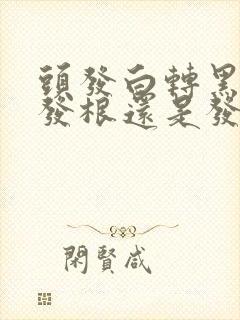 頭發白轉黑
發根還是發
閑賢咸